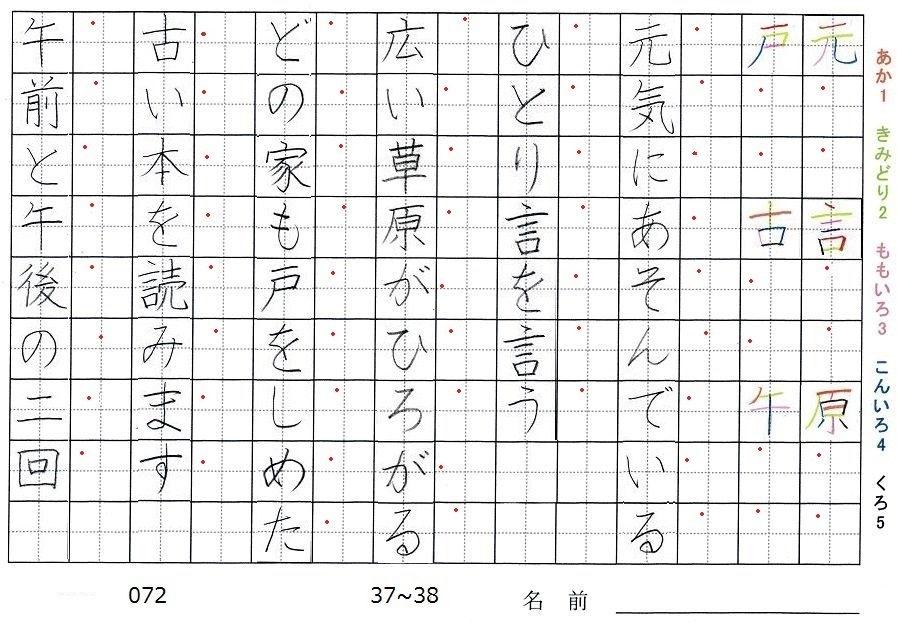 あか1 きみどり2 ももいろ3 こんいろ4 くろ5
元言原
戸古午
元気にあそんでいる
ひとり言を言う
広い草原がひろがる
どの家も戸をしめた
古い本を読みます
午前と午後の二回
072 37~38 名前